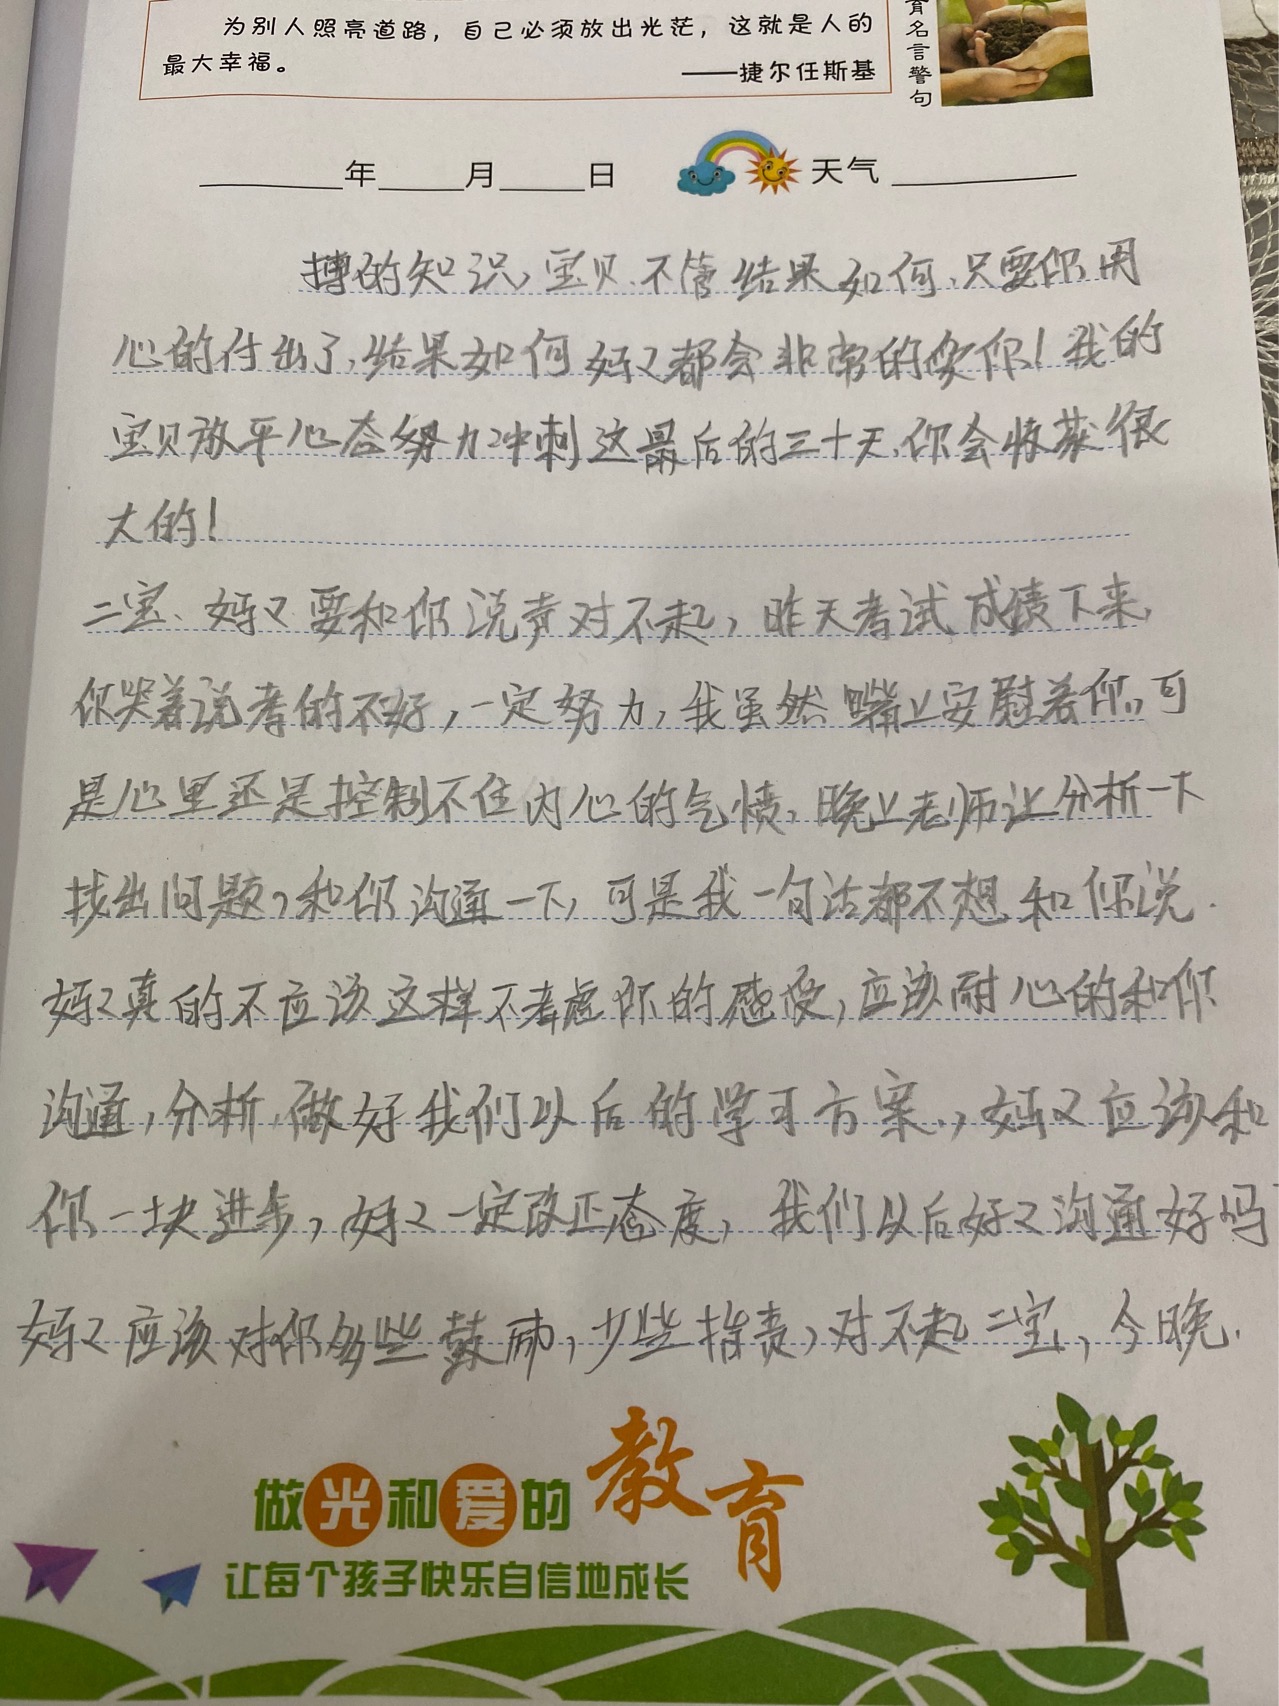 为别人照亮道路，自己必须放出光芒，这就是人的
最大幸福。
——捷尔任斯基
育名言警句
年 月 日 天气
搏的知识，宝贝、不管结果如何，只要你用
心的付出了，结果如何妈又都会非常的爱你！我的
宝贝放平心态努力冲刺这最后的三十天，你会收获很
大的！
二宝、妈又要和你说声对不起，昨天考试成绩下来，
你哭着说考的不好，一定努力，我虽然嘴上安慰着你，可
是心里还是控制不住内心的气愤，晚上老师让分析一下
找出问题，和你沟通一下，可是我一句话都不想和你说.
妈又真的不应该这样不考虑你的感受，应该耐心的和你
沟通，分析，做好我们以后的学习方案.，妈又应该和
你一块进步，妈又一定改正态度，我们以后好又沟通好吗
妈又应该对你多些鼓励，少些指责，对不起二宝，今晚.
做光和爱的教育
让每个孩子快乐自信地成长